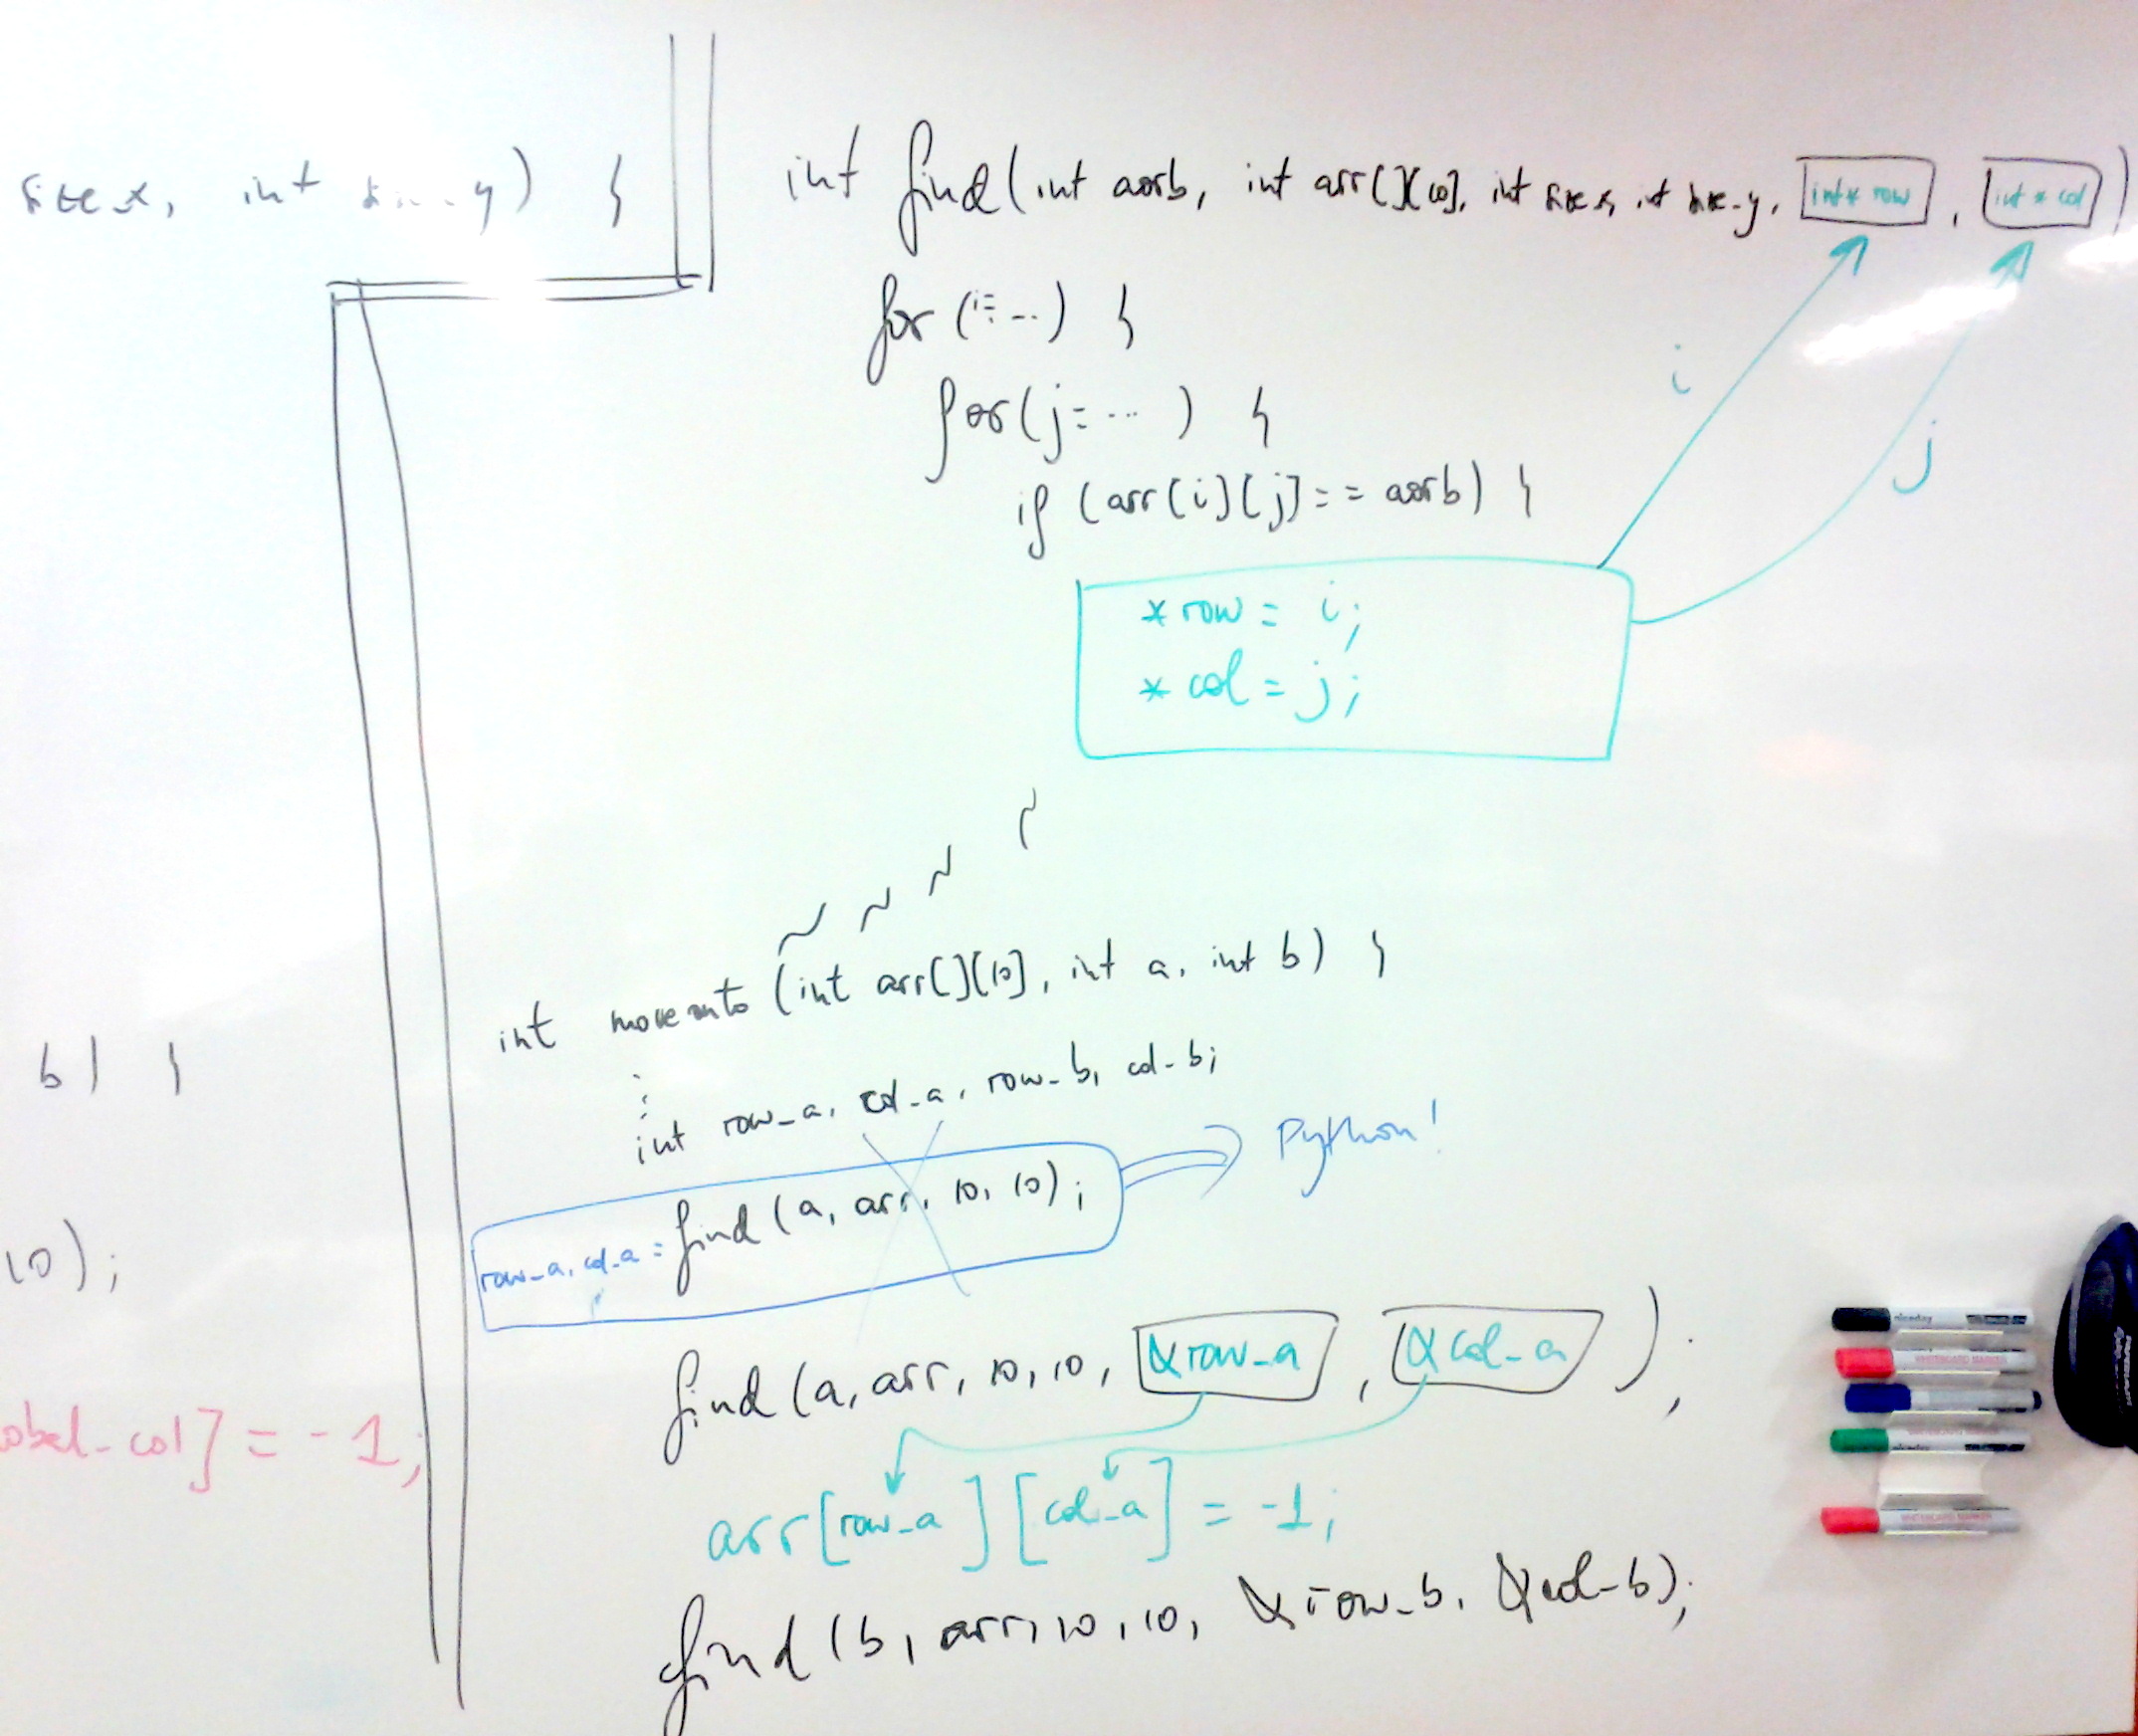 size_x, int y) {
int find(int aorb, int arr[][10], int size_x, int size_y, int* row, int* col)
for (i=...) {
for(j=...) {
if (arr[i][j]==aorb) {
i
j
*row = i;
*col = j;
int moveonto (int arr[][10], int a, int b) {
b) {
int row_a, col_a, row_b, col_b;
row_a, col_a = find (a, arr, 10, 10);
Python!
10);
find (a, arr, 10, 10, &row_a, &col_a);
obal-col] = -1;
arr[row_a][col_a] = -1;
find (b, arr, 10, 10, &row_b, &col_b);
WHITEBOARD MARKER